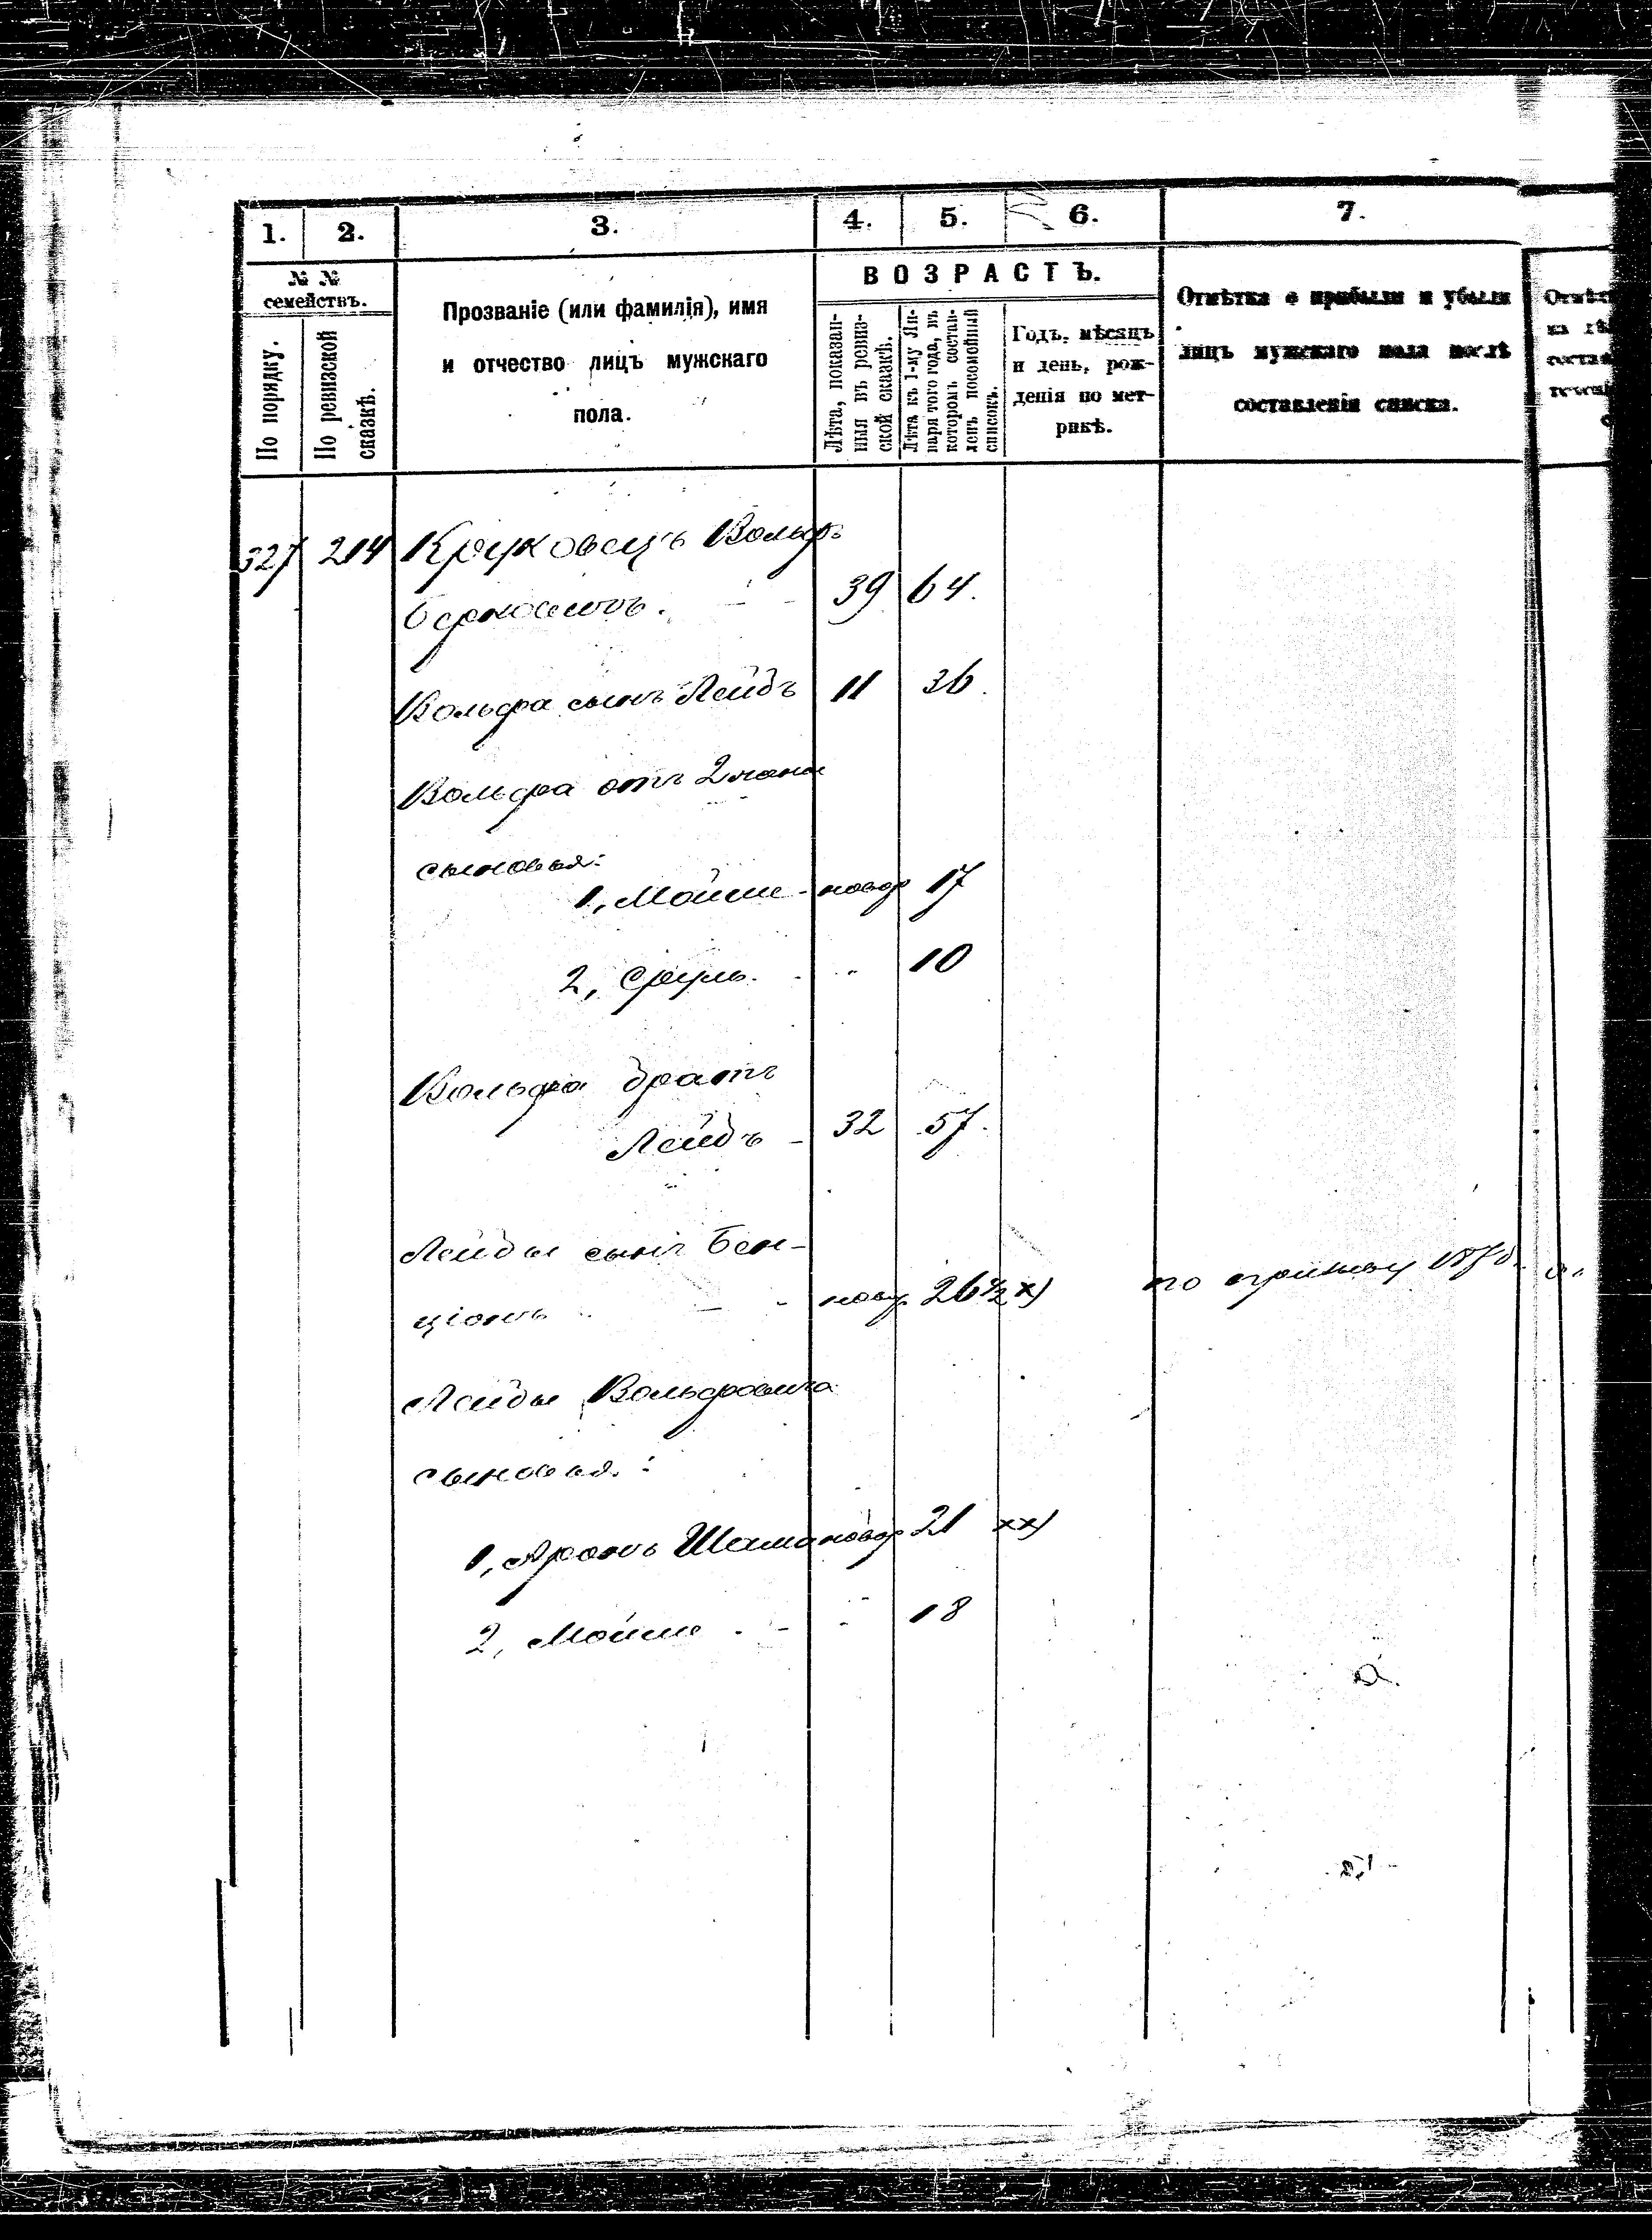 1. 2. 3. 4. 5. 6. 7.
№ №
семействъ.
По порядку.
По ревизской
сказкѣ.
Прозваніе (или фамилія), имя
и отчество лицъ мужскаго
пола.
ВОЗРАСТЪ.
Лѣта, показан-
ныя въ ревиз-
ской сказкѣ.
Лѣта къ 1-му Ян-
варя того года, въ
которомъ состав-
ленъ посемейный
списокъ.
Годъ, мѣсяцъ
и день, рож-
денія по мет-
рикѣ.
Отмѣтка о прибыли и убыли
лицъ мужскаго пола послѣ
составленія списка.
327 214 Круковецъ Вольфъ
Берковичъ. 39 64.
Вольфа сынъ Лейбъ 11 36.
Вольфа отъ 2 жены
сыновья:
1, Мойше - новор 17
2, Сруль. - " 10
Вольфа братъ
Лейбъ - 32 57.
Лейбы сынъ Бен-
ціонъ - - новор. 26 1/2 х)
по призыву 187
Лейбы Вольфовича
сыновья:
1, Аронъ Шлема новор 21 хх)
2, Мойше - - 18